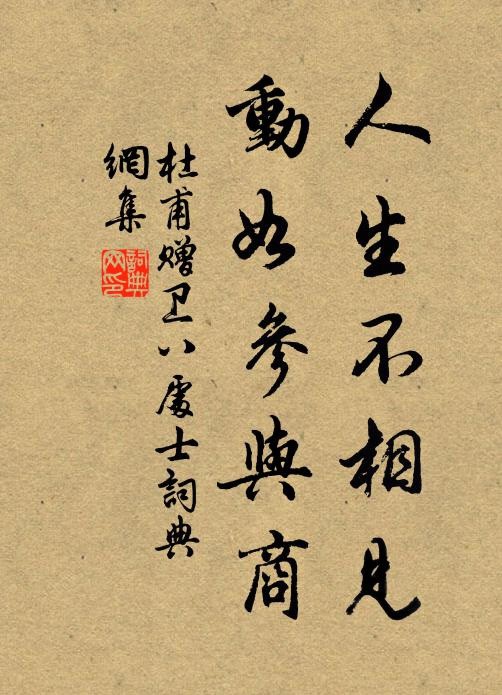 人生不相見
動如參與商
杜甫贈卫八處士詞典
網集
詞典
网印